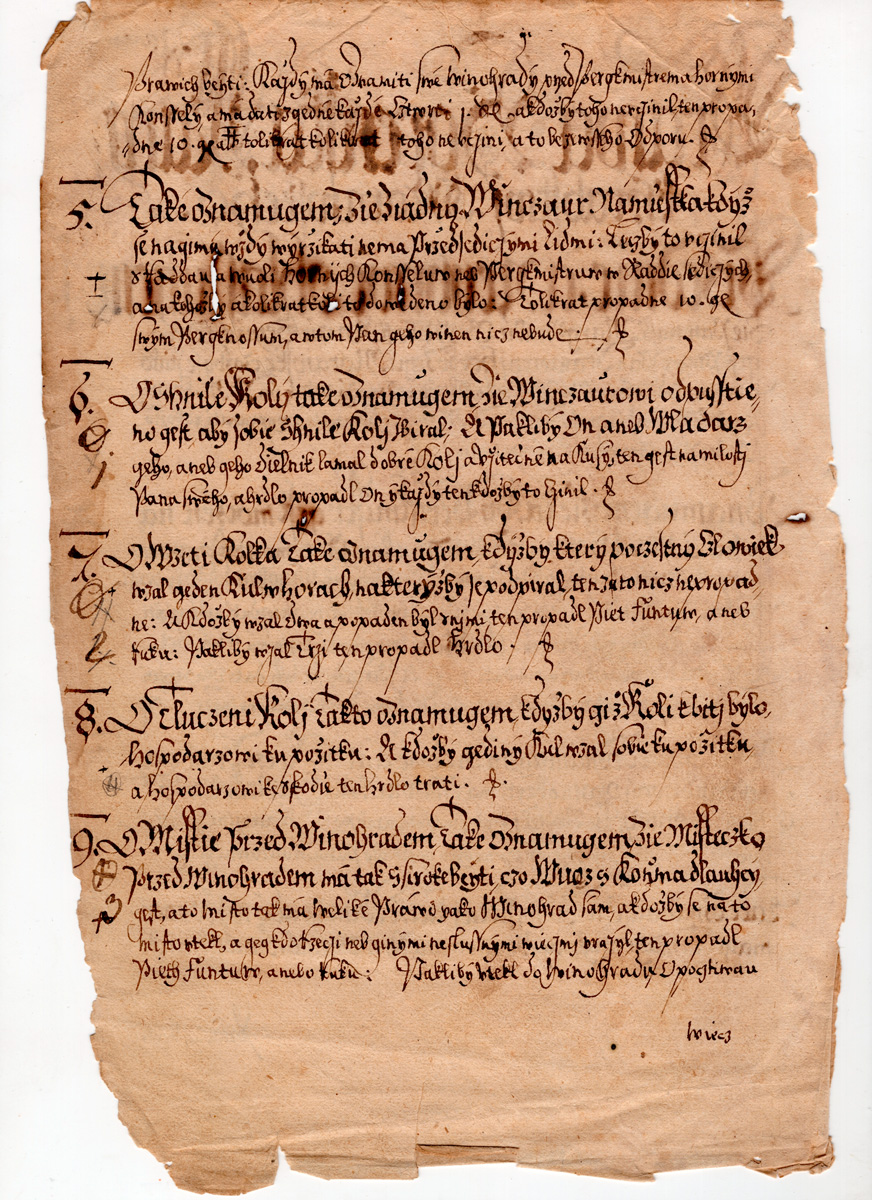 Prawich beyti: Každy má Oznamiti swé winohrady, przed Pergkmistrem a hornymi
Konssely, a má dati z gedné každé Cztwrti 1. a kdožby toho nevcžinil, ten propa,
dne 10. ge a tolikrat kolikrat toho nevcžini, a to beze wsseho Odporu.
5. Také Oznamugem, Zie žiadny Winczaur Námustka když
se nagima, nema Przed sediczymi Lidmi: Czožby to vcžinil
hornich Konsseluw neb Pergkmistruw w Raddie sediczych,
a na kohožby a kolikrat koli to dowedeno bylo: Tolikrat propadne 10. ge
swym Pergknossum, a w tom Pan geho winen nicz nebude.
6. O Shnilé Kolý také oznamugem, Zie Winczaurowi odpusstie,
no gest, aby sobie Shnilé Kolj zbiral: A Pakliby On aneb Wladarz
geho, aneb geho dielnik lamal dobré Kolj a vžitečné na Kusy, ten gest na milosti
Pana swého, a hrdlo propadl On y každy ten kdožby to vcžinil.
7. O Wzeti Kolka Také oznamugem, kdyžby který poczestný Czlowiek
wzal geden Kul w horach, na kteryžby se podpiral, ten za to nicz nepropad,
ne: A Kdožby wzal dwa a popaden byl s nimi, ten propadl Piet Funtuw, aneb
Ruku: Pakliby wzal Trzi ten propadl Hrdlo.
8. O Tluczeni Kolj Takto oznamugem, kdyžby giž Koli k bitj bylo,
hospodarzowi ku požitku: A kdožby gediny Kul wzal sobie ku požitku,
a hospodarzowi ke sskodie ten hrdlo trati.
9. O Mistie Przed Winohradem, Také Oznamugem, Zie Misteczko
Przed Winohradem má tak Ssiroké beyti, czo Wuoz s Konma dlauhy
gest, a to misto tak má weliké Práwo yako Winohrad sám, a kdožby se na to
misto vtekl, a geg kdo rzeczi neb ginymi neslussnymi wieczmi vrazyl, ten propadl
Pieth Funtuw, anebo Ruku: Pakliby vtekl do Winohradu, O pocztiwau
wiecz